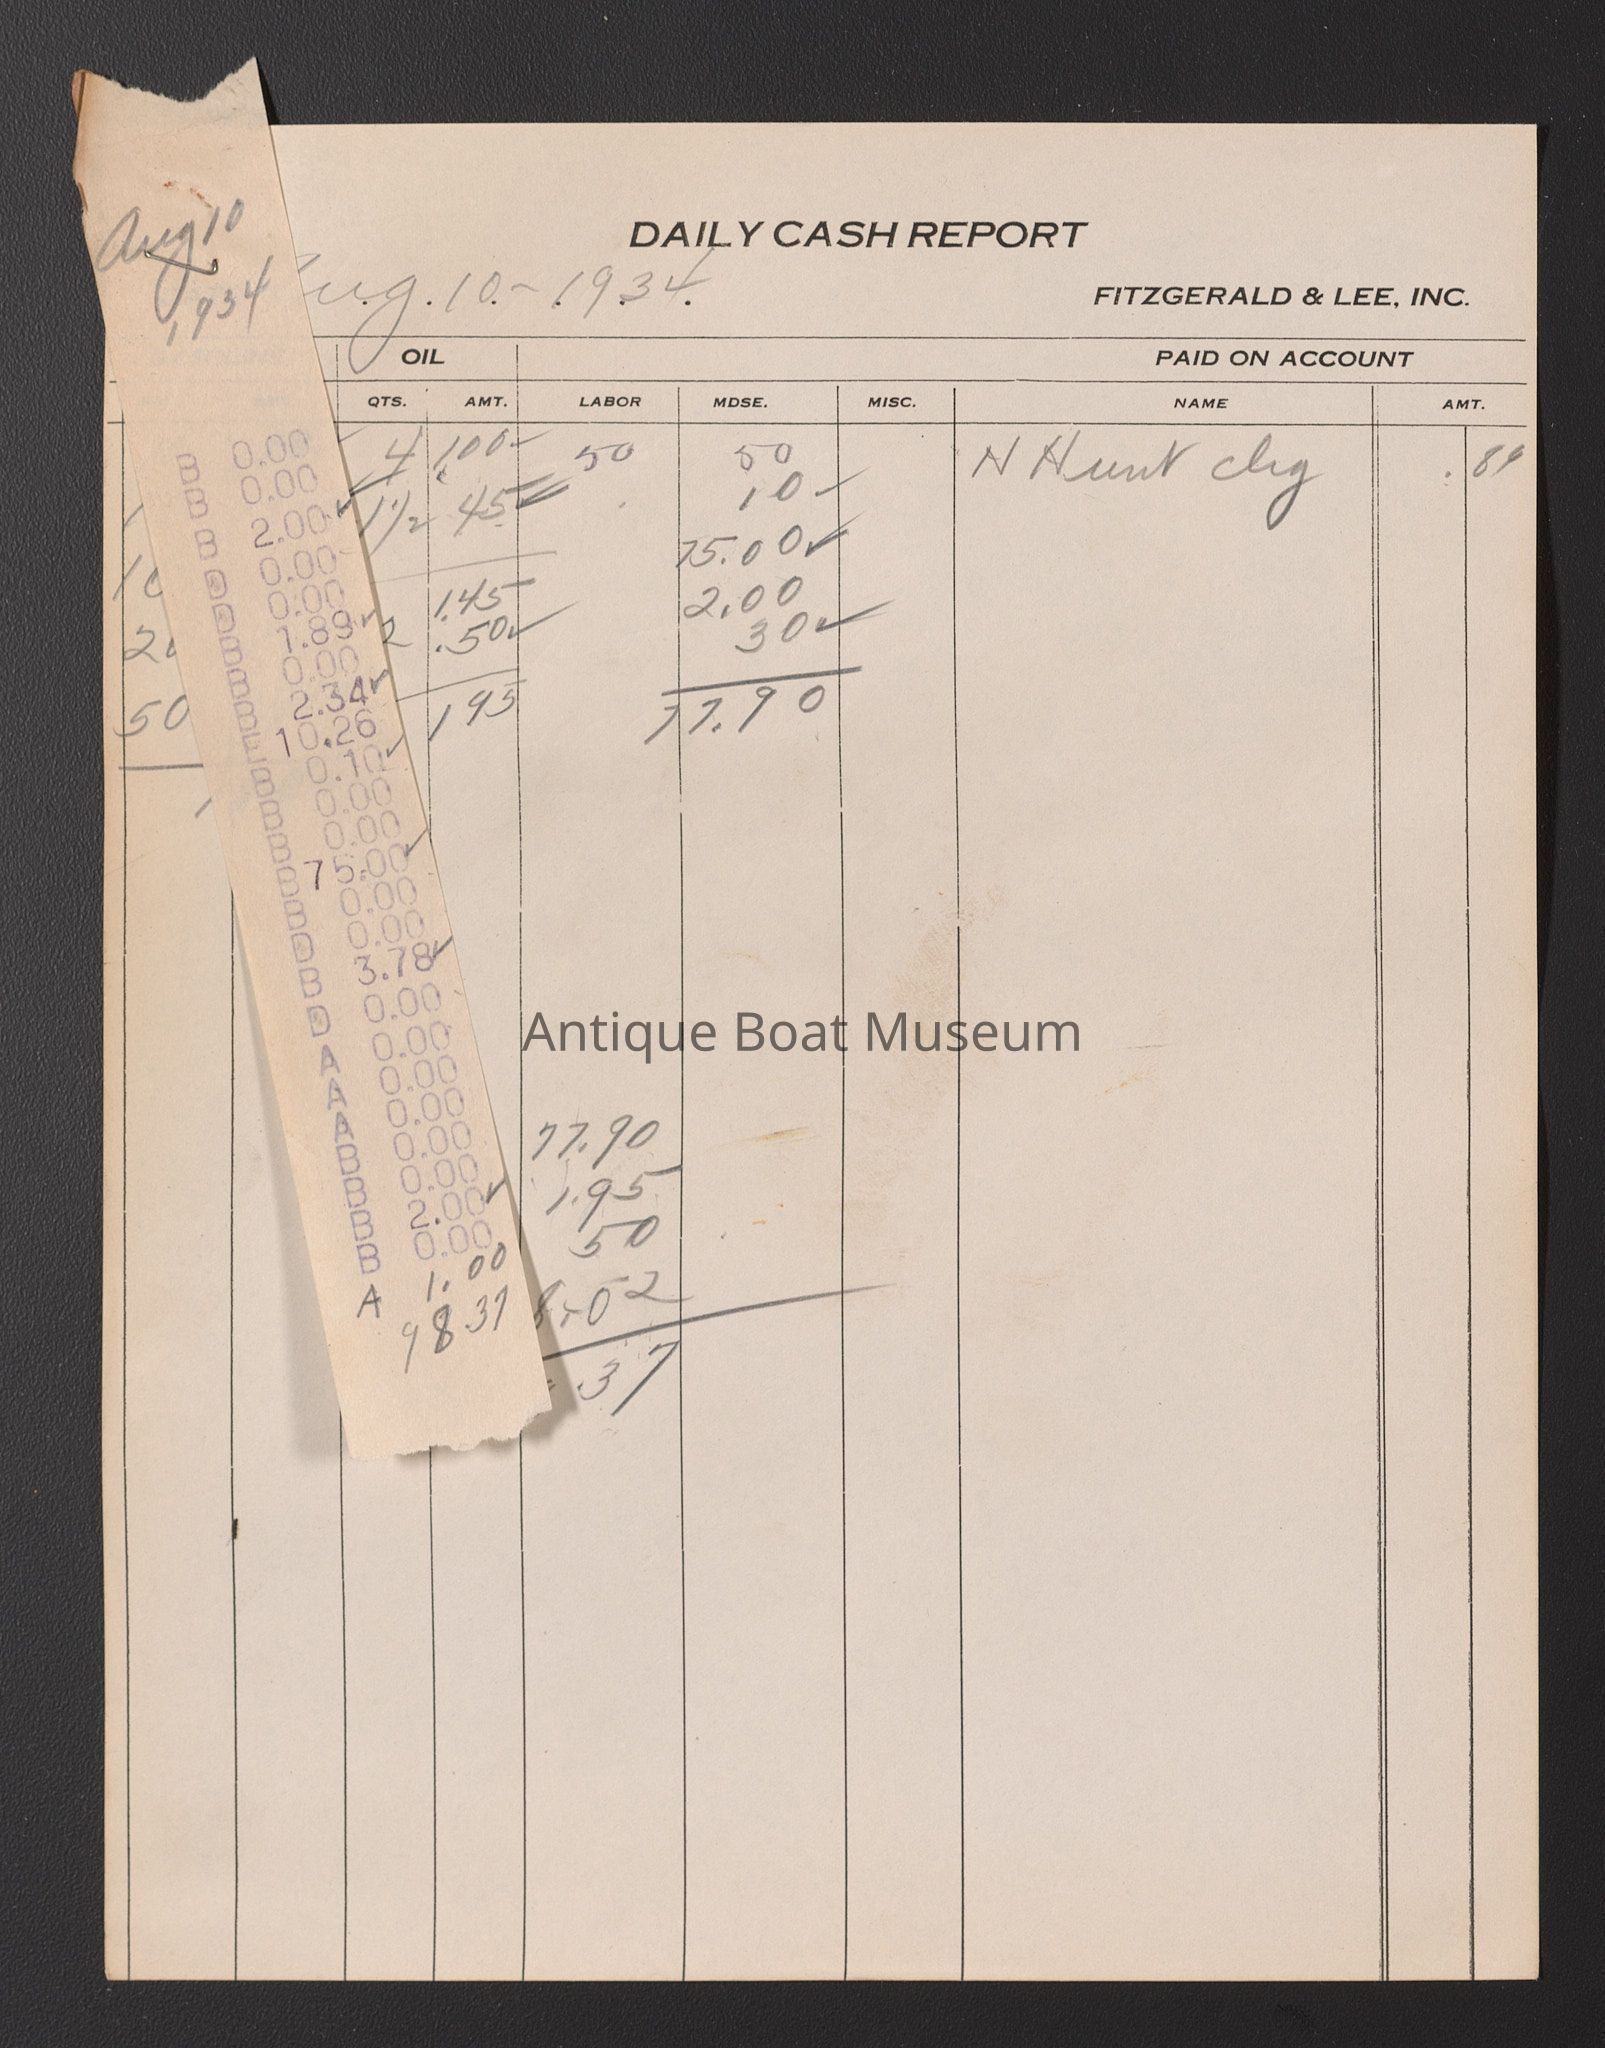 DAILY CASH REPORT
Aug 10
1934
Aug. 10 - 1934.
FITZGERALD & LEE, INC.
OIL PAID ON ACCOUNT
QTS. AMT. LABOR MDSE. MISC. NAME AMT.
4 1.00 50 50 N Hunt chg .89
1 1/2 45 10
75.00
1.45 2.00
2 .50 30
50 1 95 77.90
0.00
0.00
2.00
0.00
0.00
1.89
0.00
2.34
10.26
0.10
0.00
0.00
75.00
0.00
0.00
3.78
0.00
0.00
0.00
0.00
0.00
0.00
2.00
0.00
1.00
A 98 37
Antique Boat Museum
77.90
1.95
50
8.02
.37